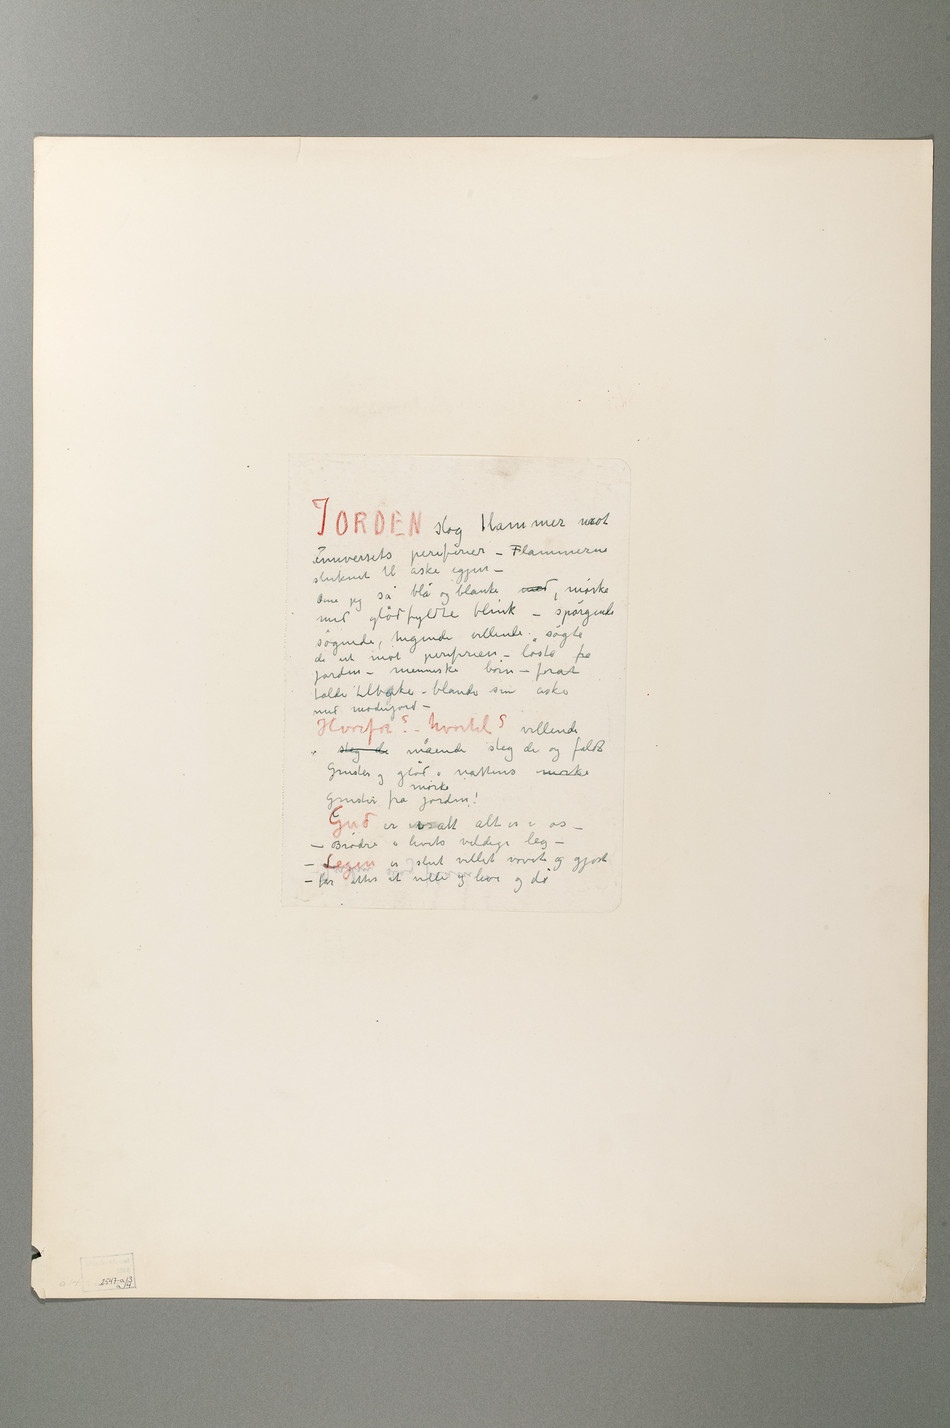 JORDEN slog flammer mot
universets periferier – Flammerne
sluknet til aske igjen –
Øine jeg så blå og blanke med, mørke
med glödfyldte blink – spörgende
sögende, higende villende sögte
de ut mot periferien – löste fra
jorden – menneske börn – forat
falde tilbake – blande sin aske
med moderjord –
Hvorfor? – hvortil? villende
steg de mående steg de og faldt
Gnister og glöd i nattens mørke
mørke
Gnister fra jorden!
Gud er i os alt alt er i os –
– Brödre i livets veldige leg –
– Legen er slut villet vovet og gjort
– for etter at ville og leve og dö
2547-a13
a14